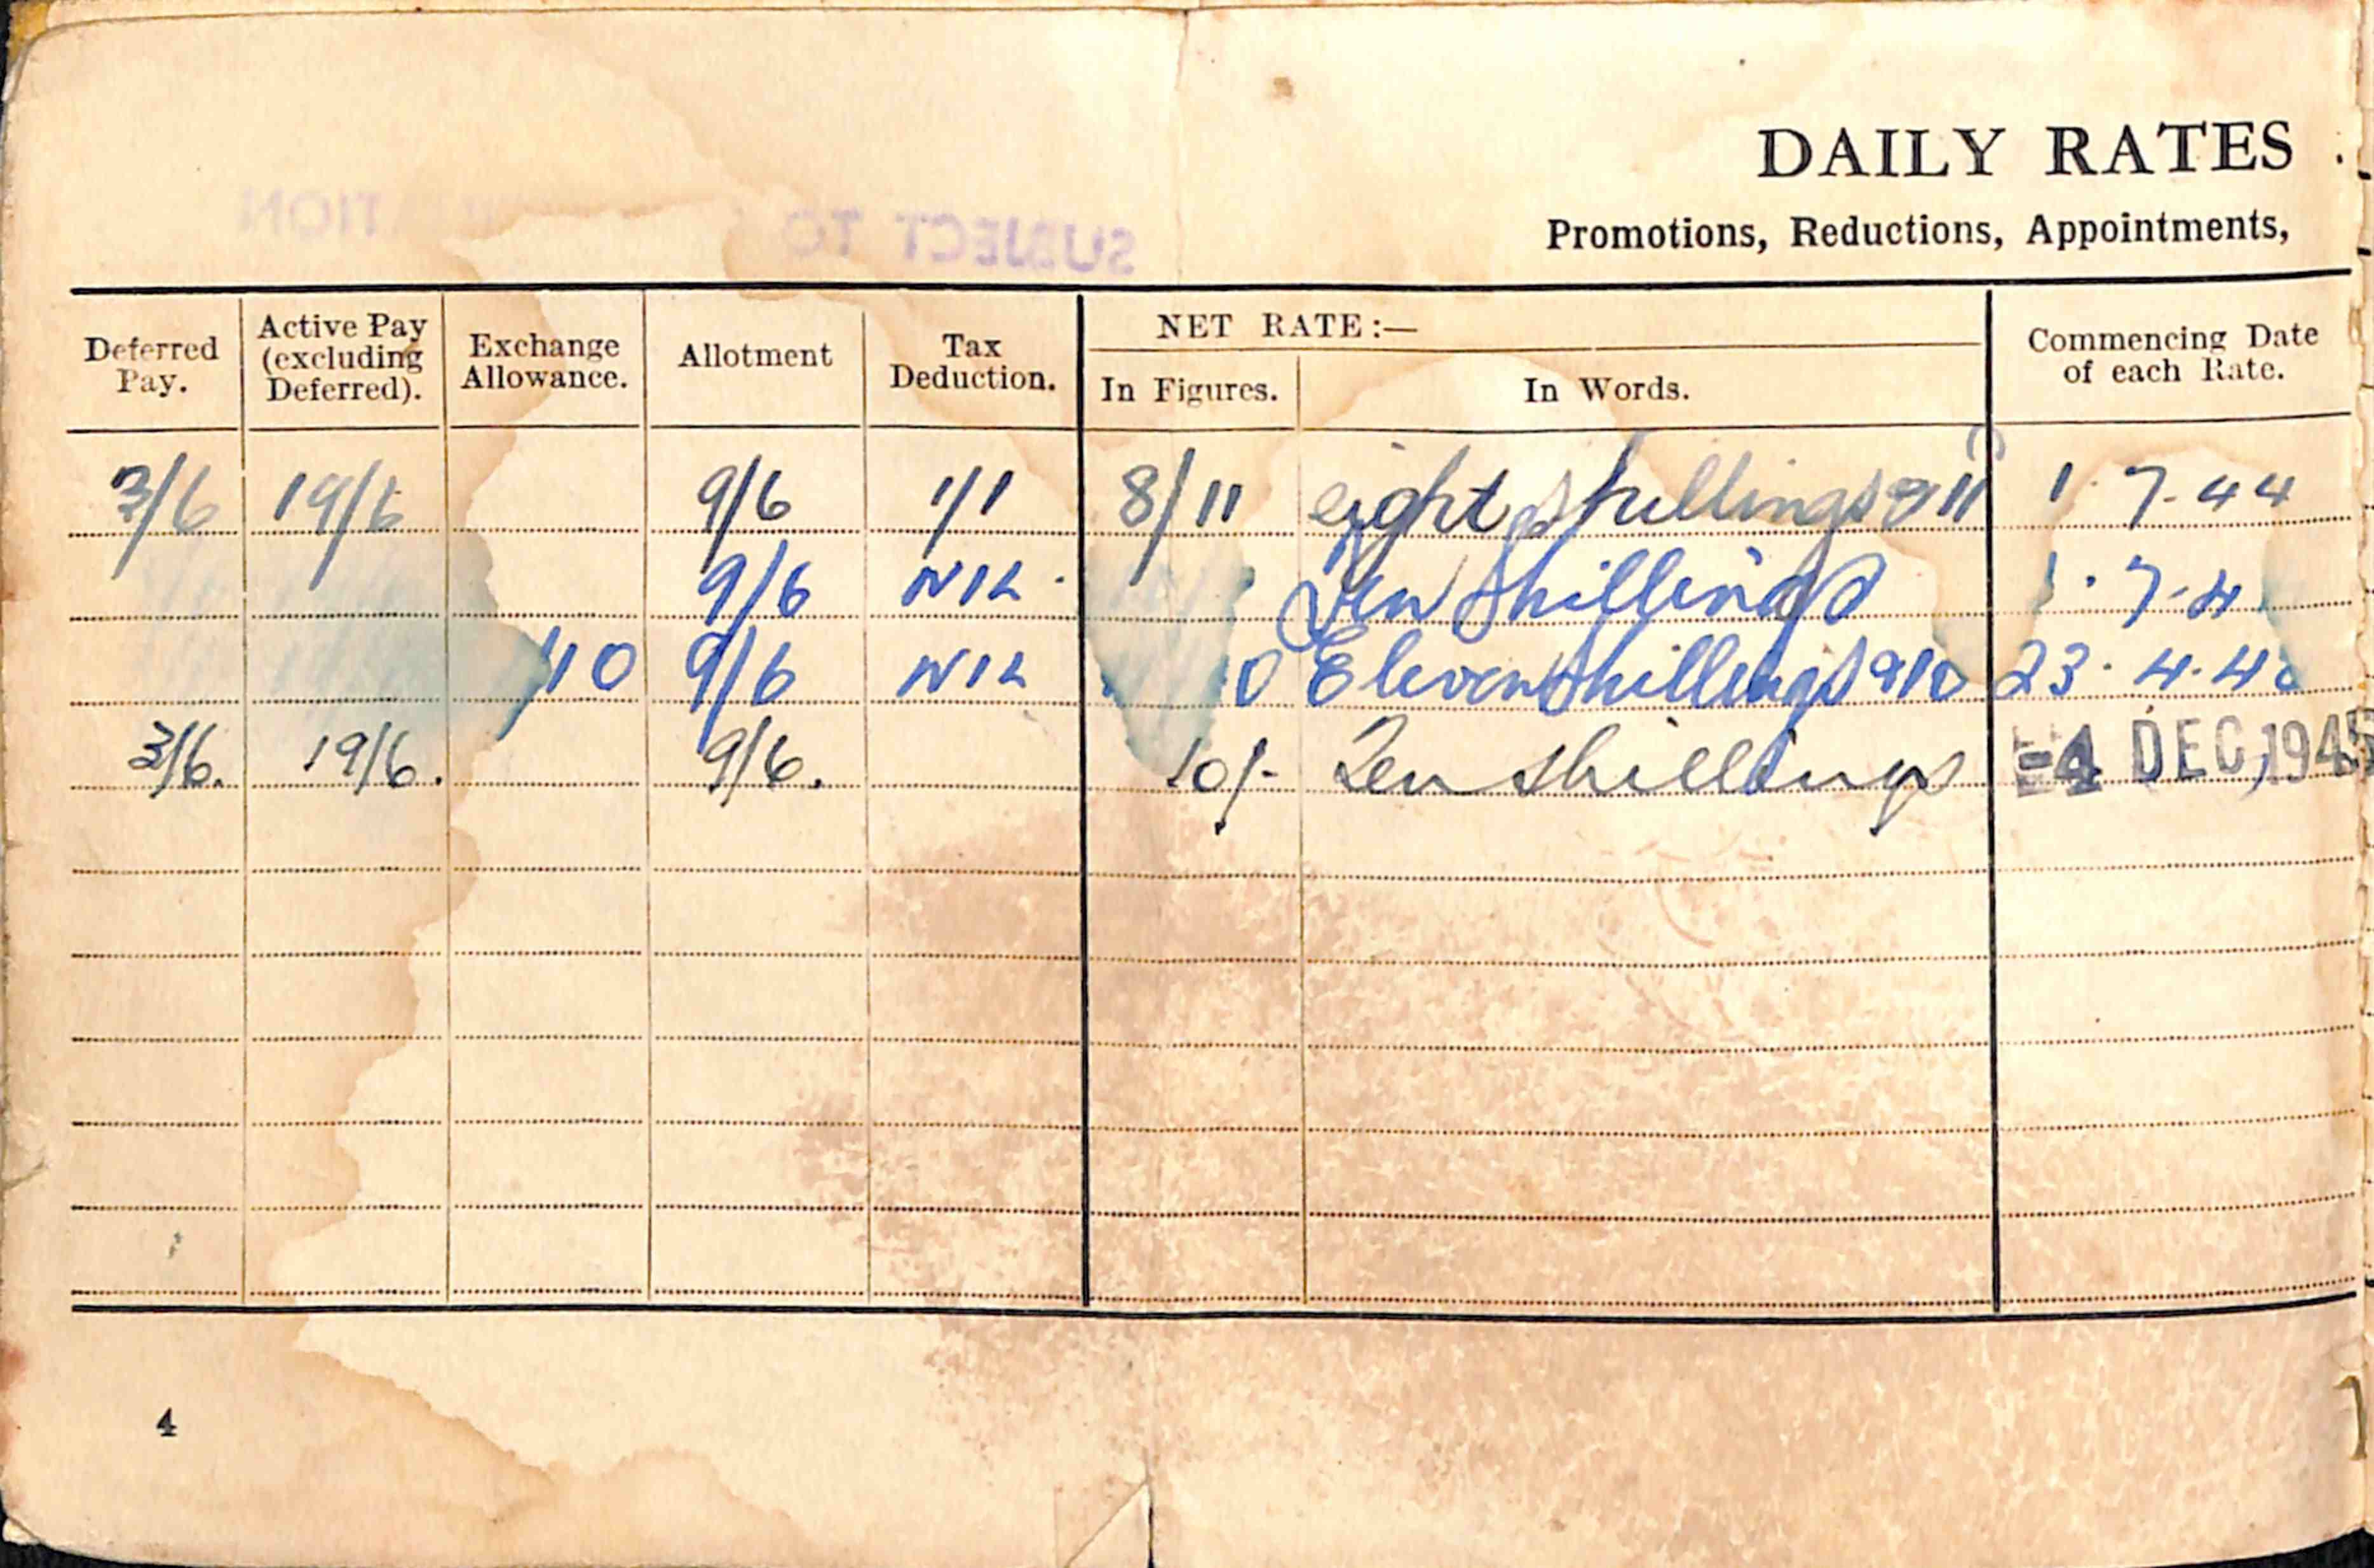 DAILY RATES
Promotions, Reductions, Appointments,
SUBJECT TO
Deferred Pay. Active Pay (excluding Deferred). Exchange Allowance. Allotment Tax Deduction. NET RATE:— In Figures. In Words. Commencing Date of each Rate.
3/6 19/6 9/6 1/1 8/11 eight shillings & 11 1.7.44
9/6 NIL Ten shillings
10 9/6 NIL Eleven shillings &10
3/6. 19/6. 9/6. 10/- Ten shillings -4 DEC 1945
4